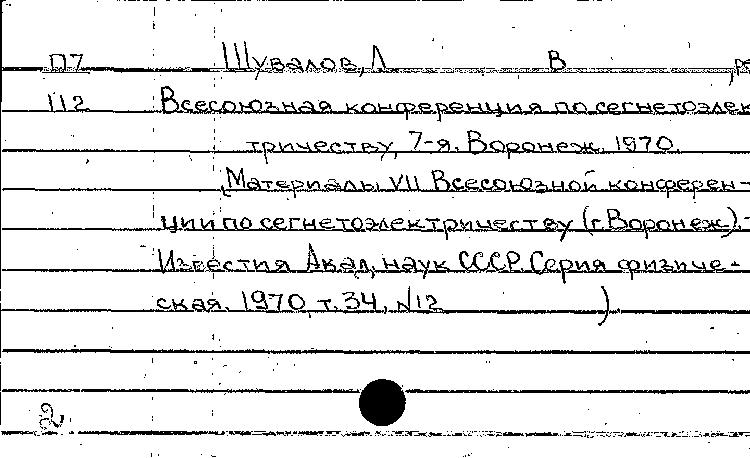 П7 Шувалов, Л В
П12 Всесоюзная конференция по сегнетоэлек
тричеству, 7-я. Воронеж. 1970.
Материалы VII Всесоюзной конферен-
ции по сегнетоэлектричеству (г. Воронеж). -
Известия Акад. наук СССР. Серия физиче-
ская. 1970, т. 34, №12 )
2.